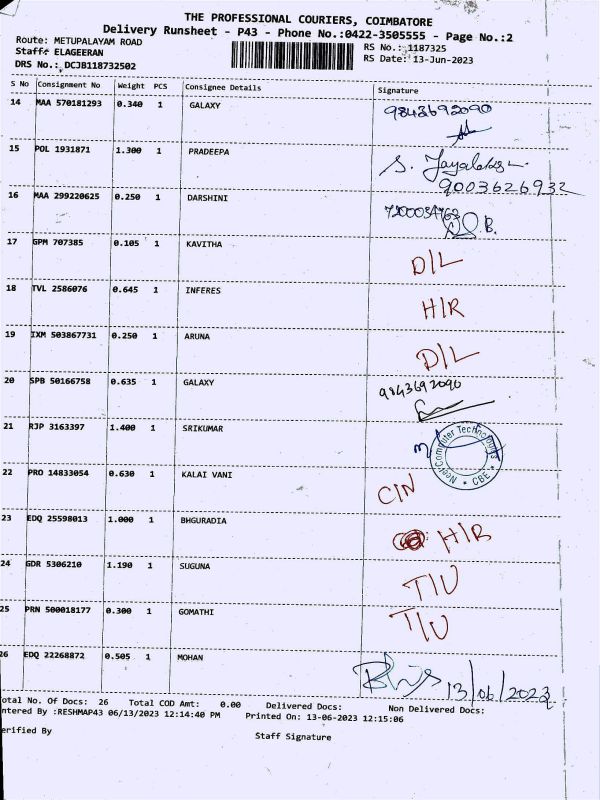 THE PROFESSIONAL COURIERS, COIMBATORE
Delivery Runsheet - P43 - Phone No.:0422-3505555 - Page No.:2
Route: METUPALAYAM ROAD
Staff: ELAGEERAN
DRS No.: DCJB118732502
RS No.: 1187325
RS Date: 13-Jun-2023
S No Consignment No Weight PCS Consignee Details Signature
14 MAA 570181293 0.340 1 GALAXY 9843692090
15 POL 1931871 1.300 1 PRADEEPA
9003626932
16 MAA 299220625 0.250 1 DARSHINI
17 GPM 707385 0.105 1 KAVITHA D/L
18 TVL 2586076 0.645 1 INFERES H/R
19 IXM 503867731 0.250 1 ARUNA D/L
20 SPB 50166758 0.635 1 GALAXY 9843692090
21 RJP 3163397 1.400 1 SRIKUMAR Neel Computer Technologys * CBE *
22 PRO 14833054 0.630 1 KALAI VANI C/N
23 EDQ 25598013 1.000 1 BHGURADIA H/R
24 GDR 5306210 1.190 1 SUGUNA T/U
25 PRN 500018177 0.300 1 GOMATHI T/U
26 EDQ 22268872 0.505 1 MOHAN 13/06/2023
otal No. Of Docs: 26 Total COD Amt: 0.00 Delivered Docs: Non Delivered Docs:
ntered By :RESHMAP43 06/13/2023 12:14:40 PM Printed On: 13-06-2023 12:15:06
erified By
Staff Signature